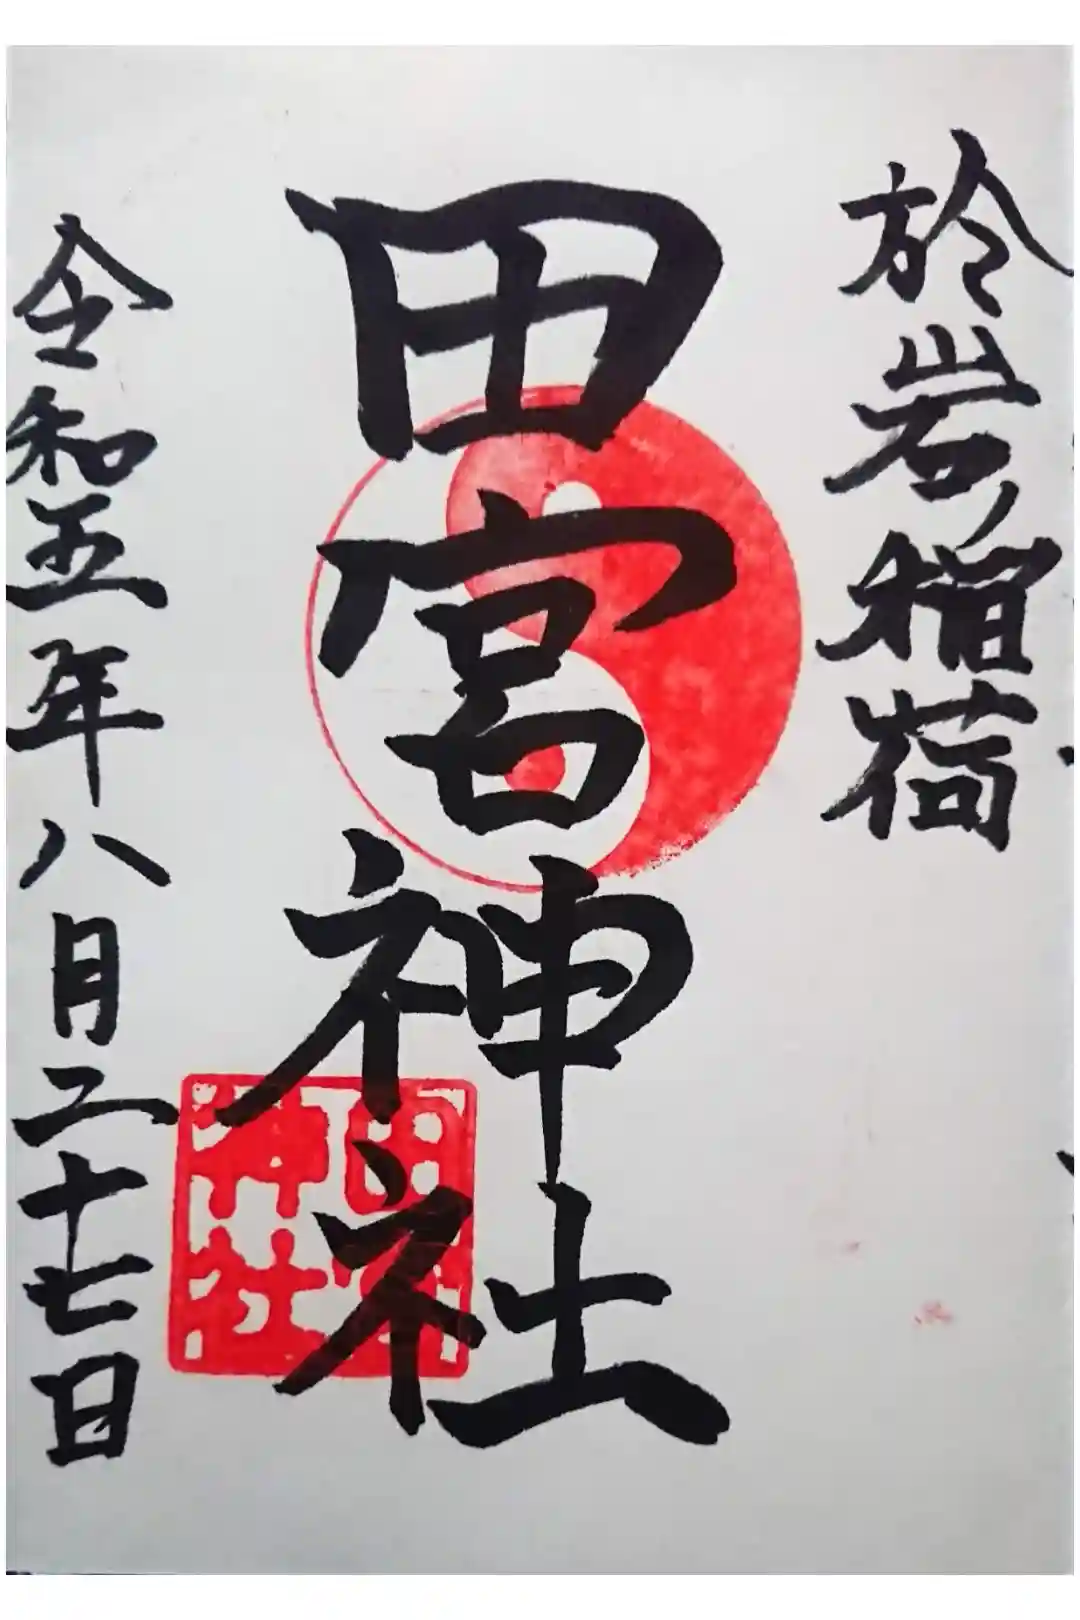 於岩稲荷
田宮神社
田宮神社
令和五年八月二十七日